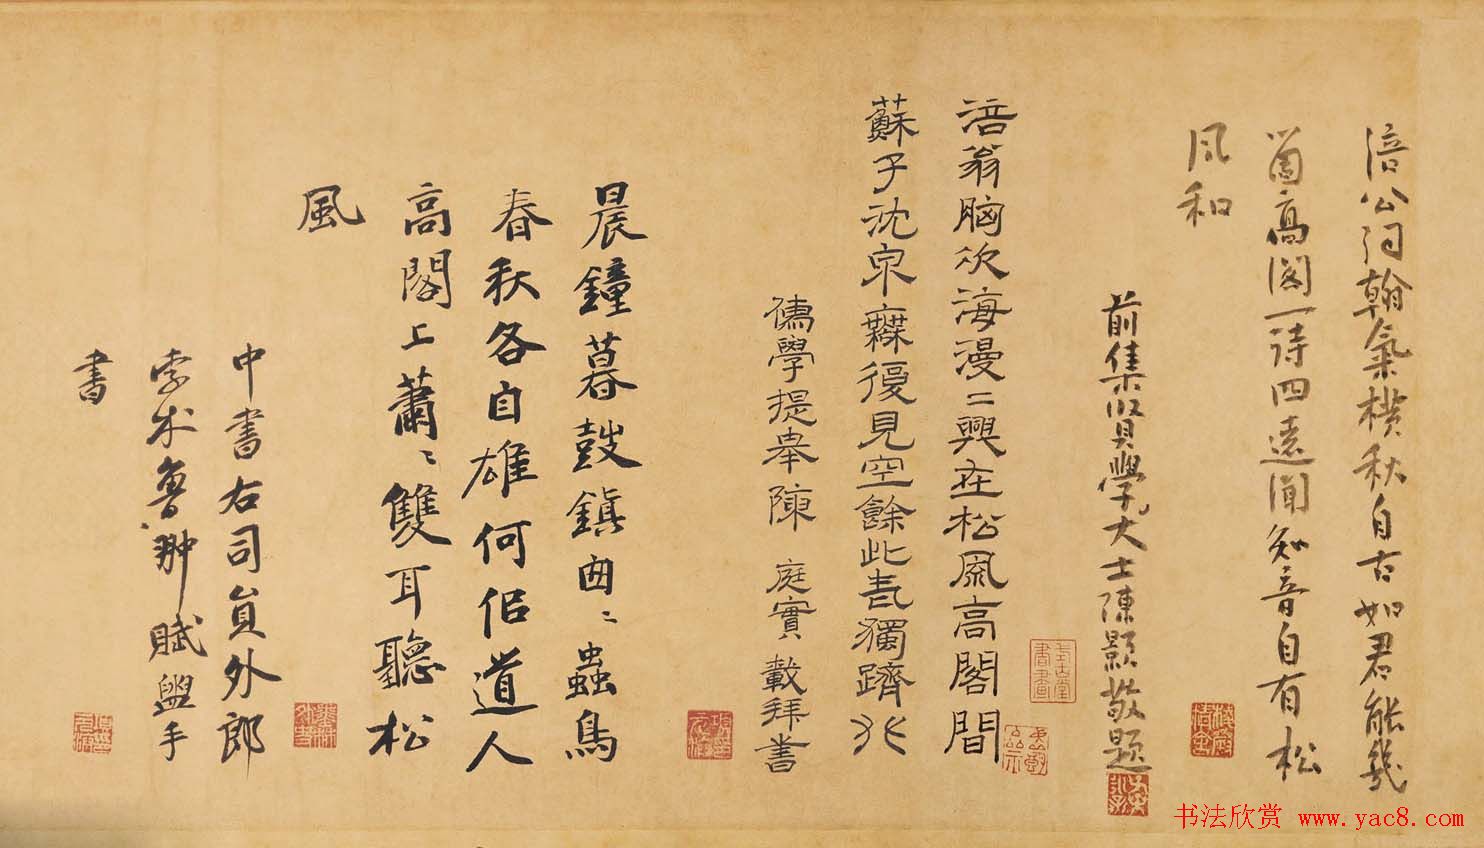 涪公词翰氣横秋自古如君能幾
箇高閣一詩四遠聞知音自有松
风和
前集贤學士大士陳顥敬題
涪翁胸次海漫〻興在松風高閣間
蘇子沈泉無復見空餘此卷獨躋
儒學提舉陳庭實載拜書
晨鐘暮鼓鎮囱〻蟲鳥
春秋各自雄何侣道人
高閣上蕭〻雙耳聽松
風
中書右司員外郎
孛术魯翀賦盥手
書
书法欣赏 www.yac8.com